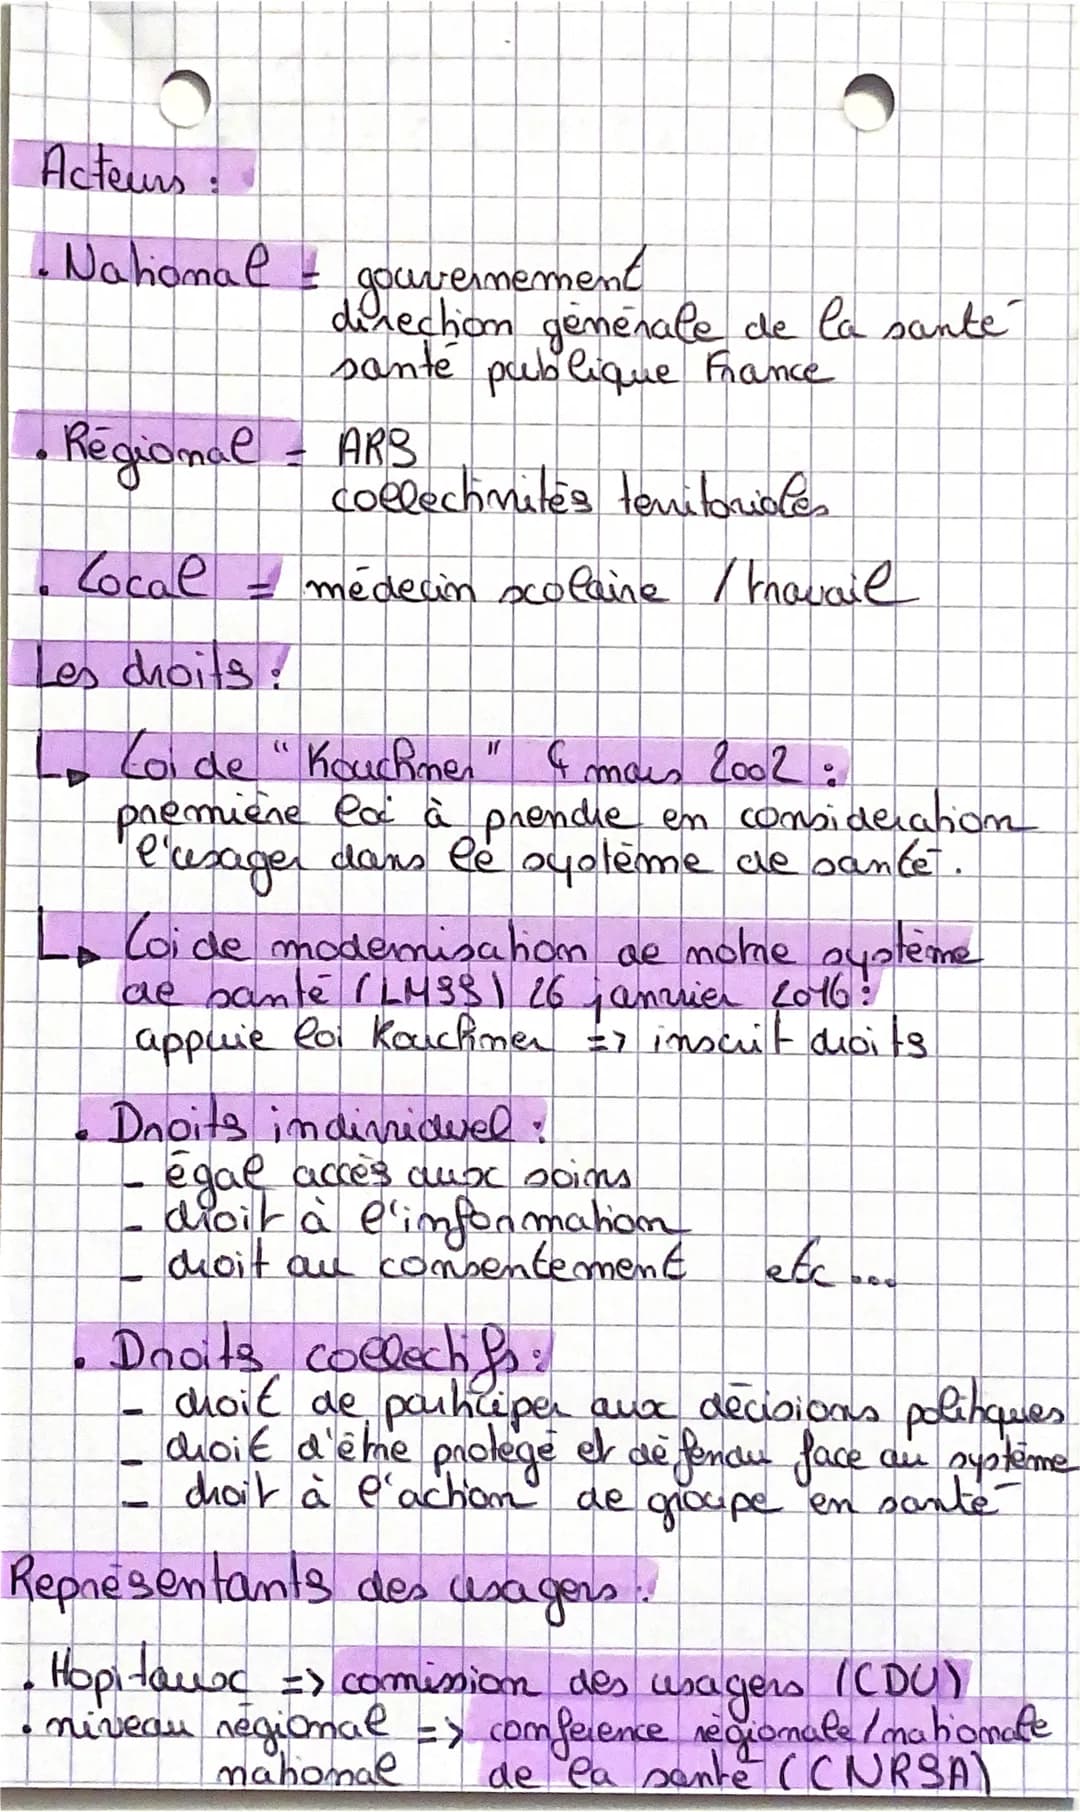 Acteurs :
. National = gouvernement
direction générale de la santé
santé publique France
. Régional = ARS
collectivités territoriales
. Local = médecin scolaire / travail
Les droits :
↳ Loi de "Kouchner" 4 mars 2002 :
première loi à prendre en consideration
l'usager dans le système de santé.
↳ Loi de modernisation de notre système
de santé (LMSS) 26 janvier 2016 :
appuie loi Kouchner => inscrit droits
. Droits individuel :
- égal accès aux soins
- droit à l'information
- droit au consentement etc ...
. Droits collectifs :
- droit de participer aux décisions politiques
- droit d'être protégé et défendu face au système
- droit à l'action de groupe en santé
Représentants des usagers :
. Hopitaux => comission des usagers (CDU)
. niveau régional => conference régionale/nationale
national de la santé (CNRSA)